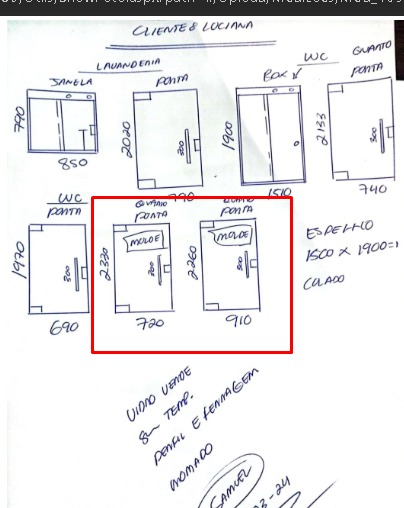 CLIENTE & LUCIANA
LAVANDERIA
JANELA
790
850
PORTA
2020
300
790
WC
BOX
1900
1510
QUARTO
PORTA
2133
300
740
WC
PORTA
1970
300
690
QUARTO
PORTA
MOLDE
2330
300
720
QUARTO
PORTA
MOLDE
2260
300
910
ESPELHO
1500 X 1900=1
COLADO
VIDRO VERDE
8mm TEMP.
PERFIL E FERRAGEM
CROMADO
SAMUEL